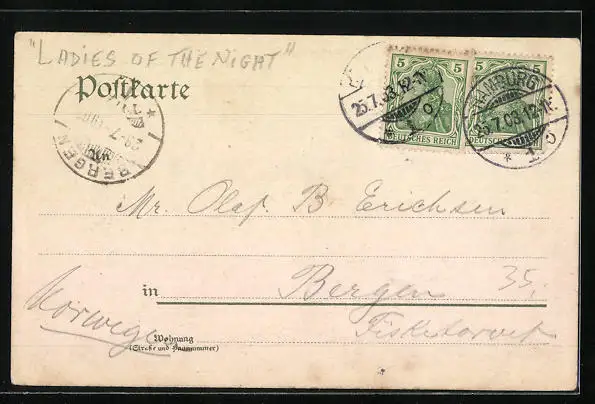 "LADIES OF THE NIGHT"
Postkarte
5 5
DEUTSCHES REICH
HAMBURG
25.7.03.12-1N.
25.7.03.12-1N.
* 1 c
BERGEN
Mr. Olaf B. Erichsen
in Bergen 35.
Fisketorvet
Norwegen
Wohnung
(Straße und Hausnummer)